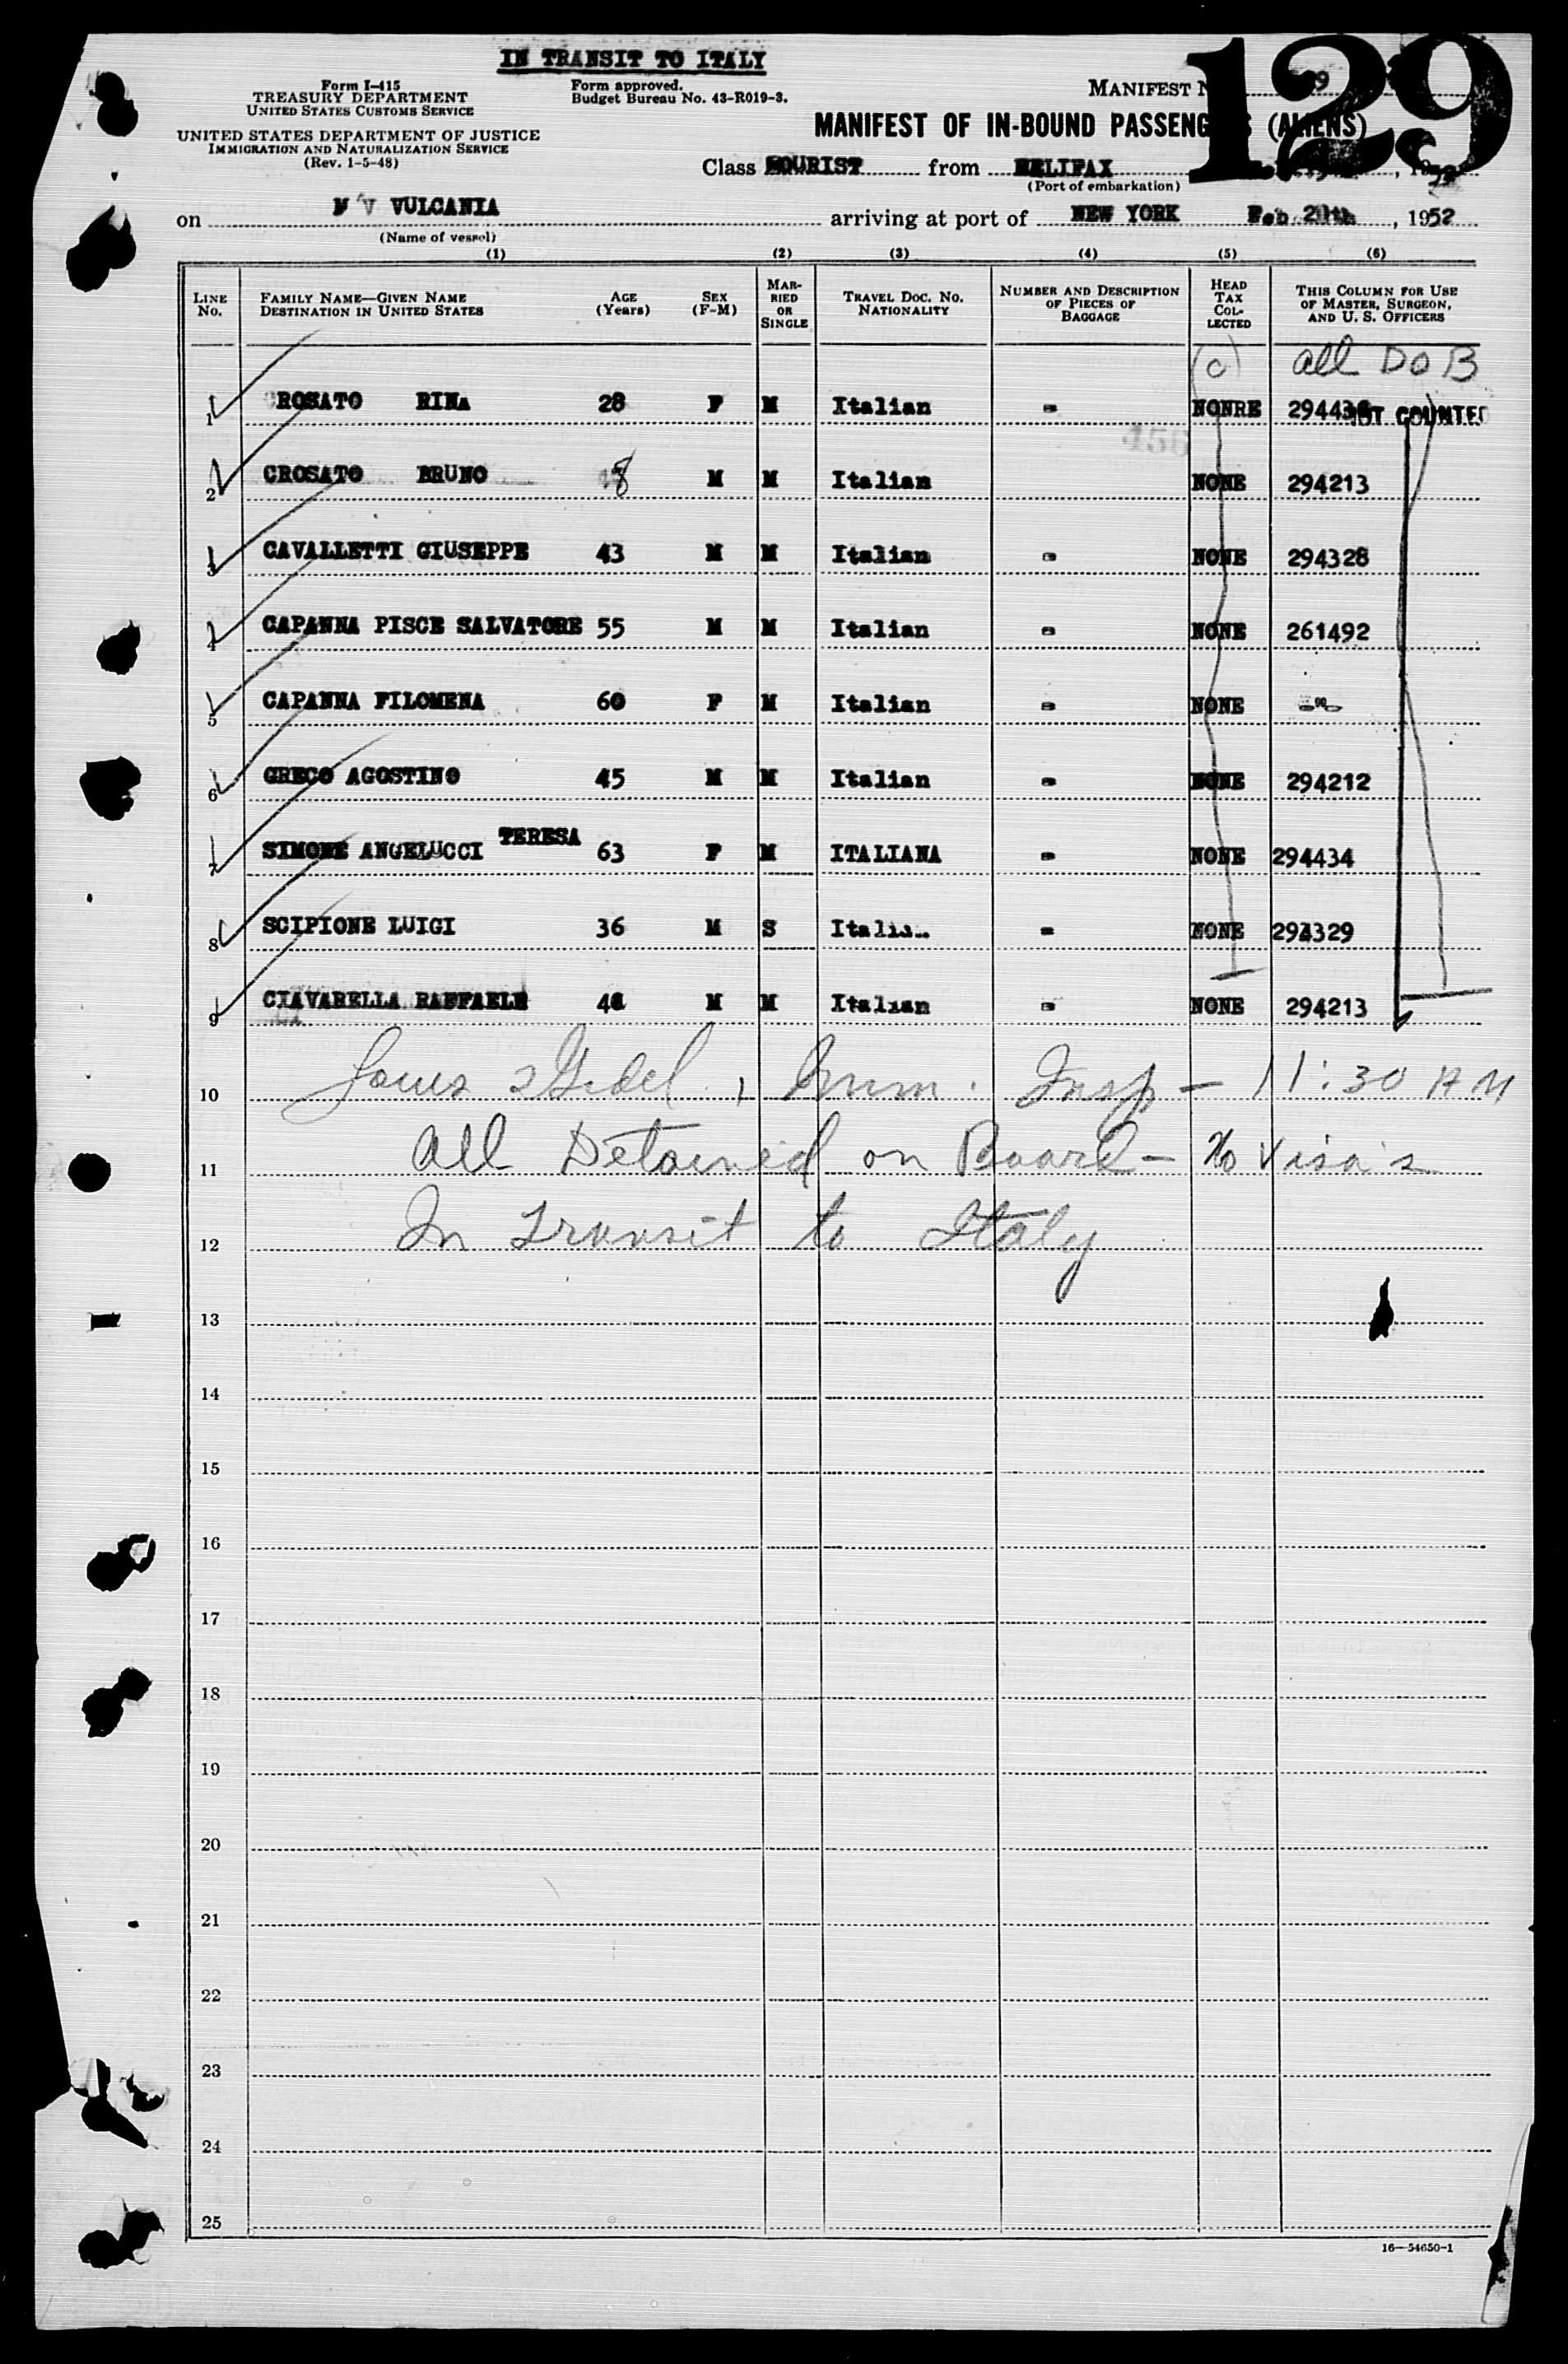 IN TRANSIT TO ITALY
Form I-415
TREASURY DEPARTMENT
UNITED STATES CUSTOMS SERVICE
UNITED STATES DEPARTMENT OF JUSTICE
IMMIGRATION AND NATURALIZATION SERVICE
(Rev. 1-5-48)
Form approved.
Budget Bureau No. 43-R019-3.
129
MANIFEST
MANIFEST OF IN-BOUND PASSENGERS (ALIENS)
Class TOURIST from HELIFAX
(Port of embarkation)
on M V VULCANIA arriving at port of NEW YORK Feb. 20th, 1952
(Name of vessel)
(1) (2) (3) (4) (5) (6)
LINE No. FAMILY NAME—GIVEN NAME DESTINATION IN UNITED STATES AGE (Years) SEX (F-M) MARRIED OR SINGLE TRAVEL DOC. NO. NATIONALITY NUMBER AND DESCRIPTION OF PIECES OF BAGGAGE HEAD TAX COLLECTED THIS COLUMN FOR USE OF MASTER, SURGEON, AND U. S. OFFICERS
(c) all D o B
1 CROSATO RINA 28 F M Italian - NONRE 294436 NOT COUNTED
2 CROSATO BRUNO 8 M M Italian NONE 294213
3 CAVALLETTI GIUSEPPE 43 M M Italian - NONE 294328
4 CAPANNA PISCE SALVATORE 55 M M Italian - NONE 261492
5 CAPANNA FILOMENA 60 F M Italian - NONE -"-
6 GRECO AGOSTINO 45 M M Italian - NONE 294212
7 SIMONE ANGELUCCI TERESA 63 F M ITALIANA - NONE 294434
8 SCIPIONE LUIGI 36 M S Italian - NONE 294329
9 CIAVARELLA RAFFAELE 48 M M Italian - NONE 294213
10 Imm. Insp - 11:30 AM
11 All Detained on Board - No Visa's
12 In Transit to Italy
13
14
15
16
17
18
19
20
21
22
23
24
25
16—54650-1